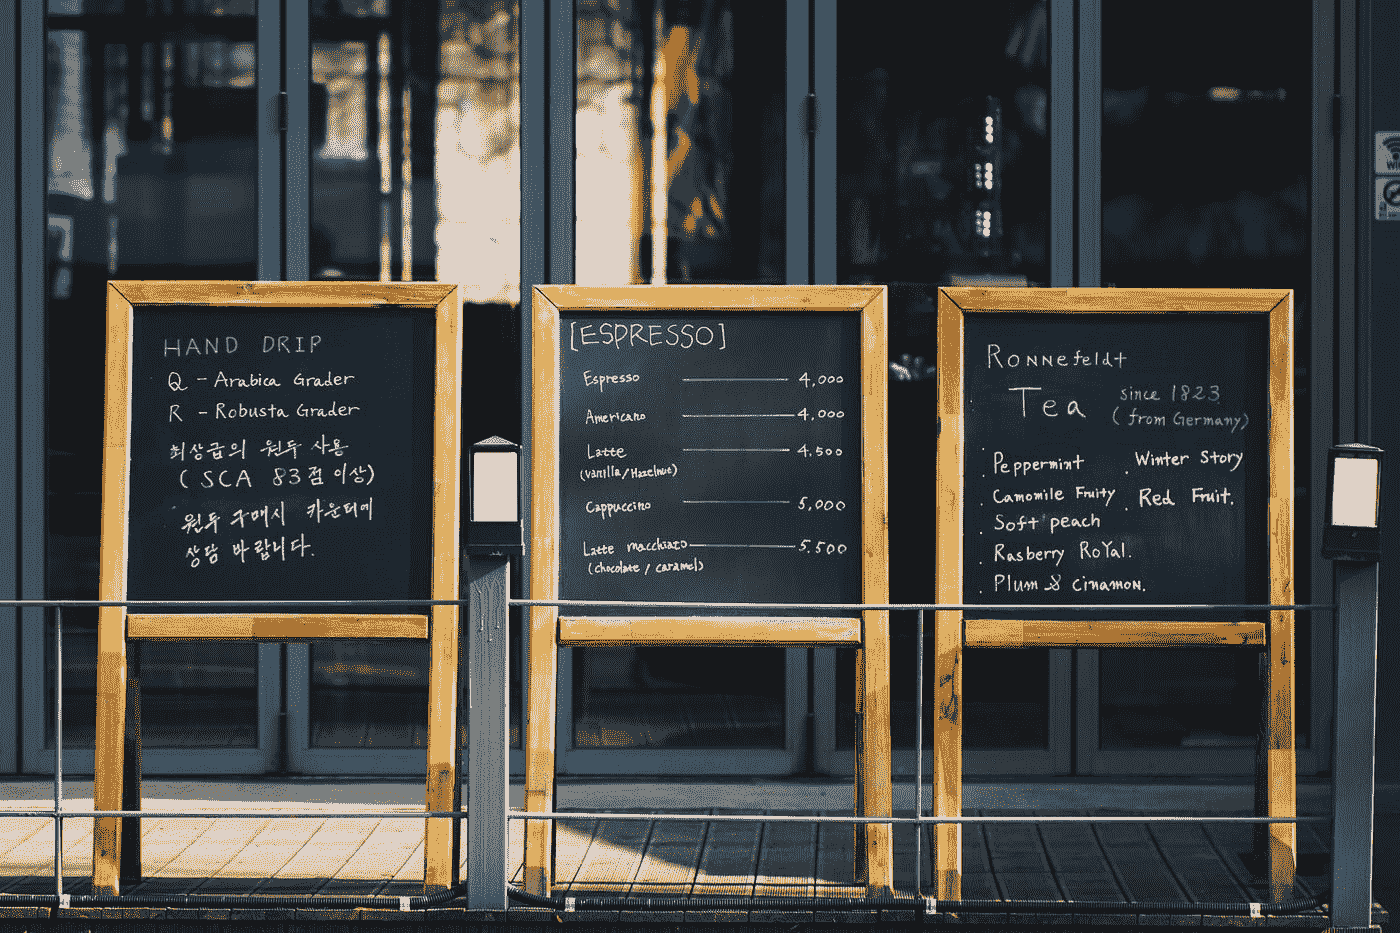 HAND DRIP
Q - Arabica Grader
R - Robusta Grader
최상급의 원두 사용
( SCA 83점 이상)
원두 구매시 카운터에
상담 바랍니다.
[ESPRESSO]
Espresso 4,000
Americano 4,000
Latte 4.500
(Vanilla/Hazelnut)
Cappuccino 5,000
Latte macchiato 5.500
(chocolate / caramel)
RONNefeldt
Tea since 1823
( from Germany)
. Peppermint
. Camomile Fruity
. Soft peach
. Rasberry RoYal.
. Plum & cinamon.
. Winter Story
. Red Fruit.